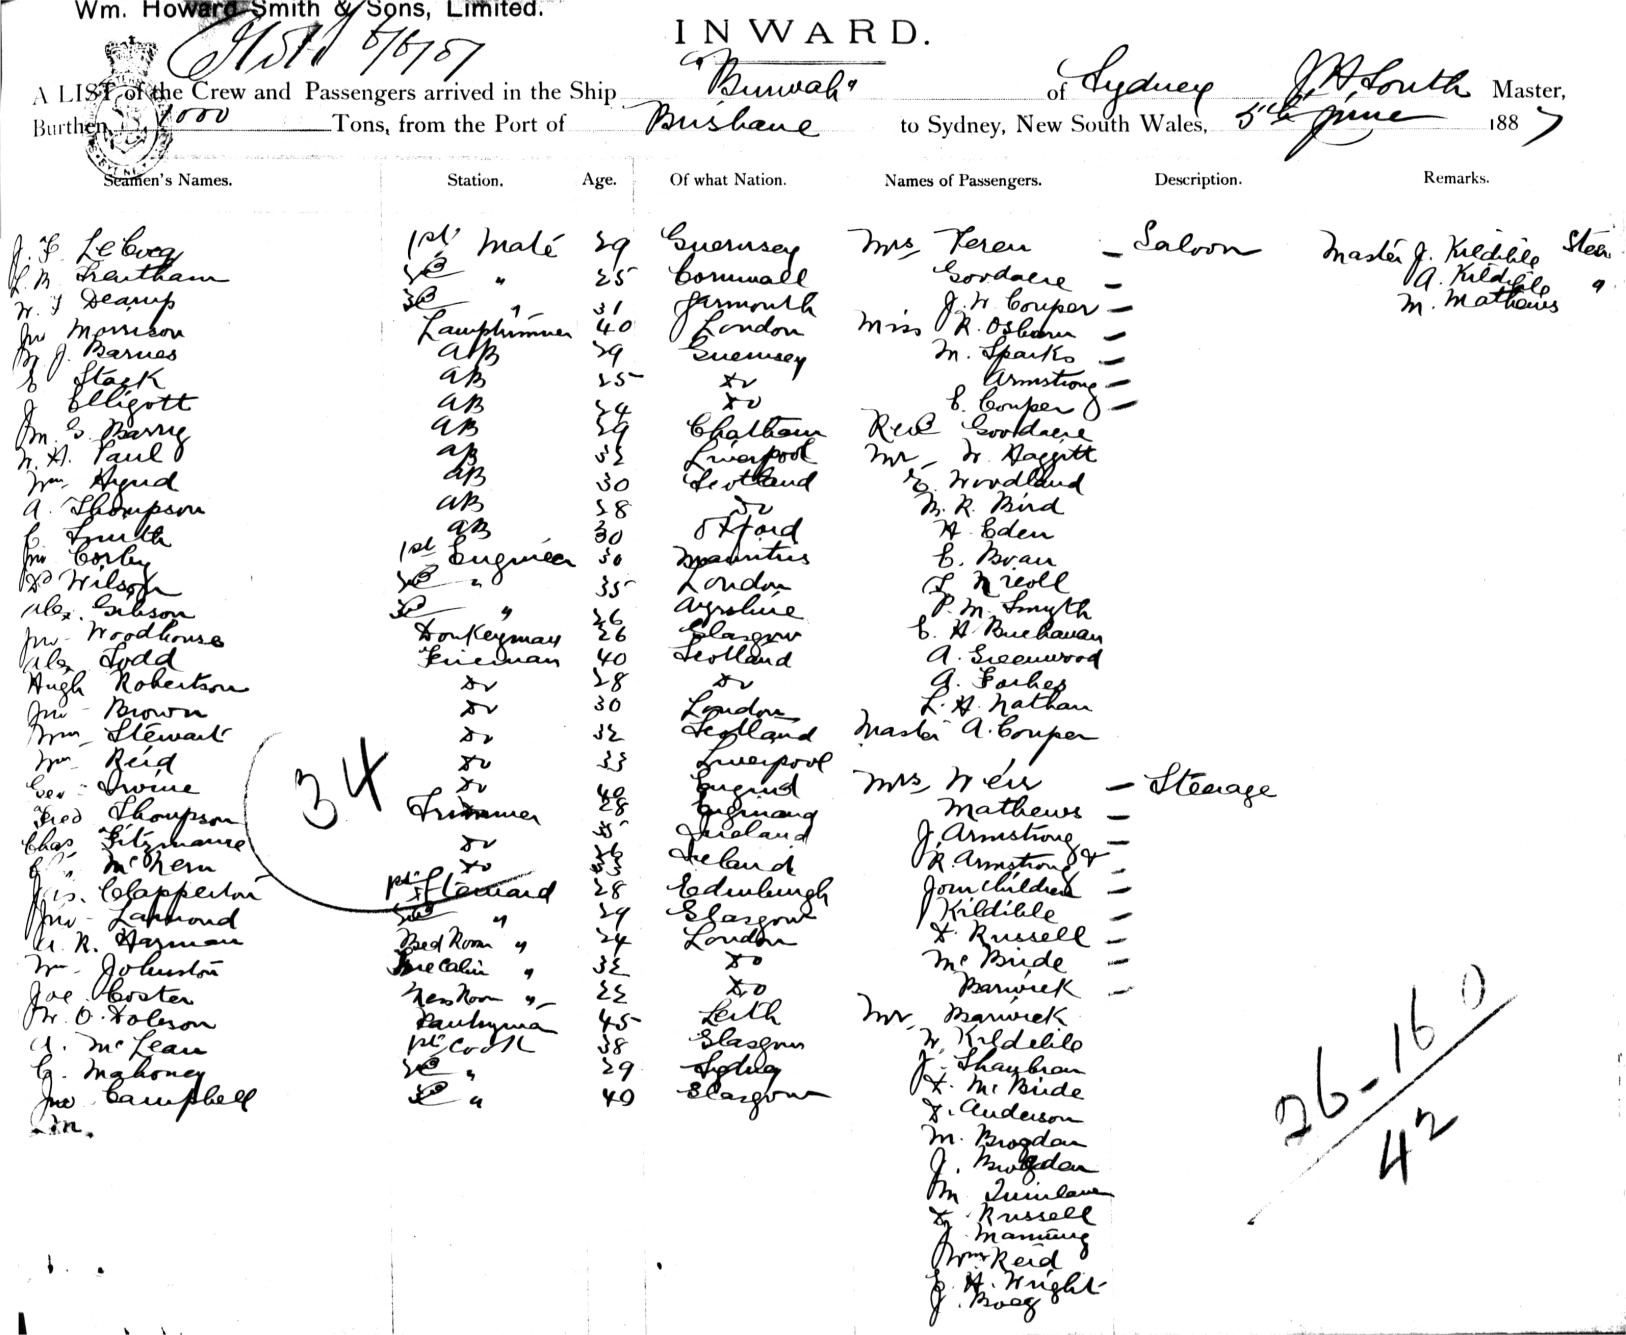 Wm. Howard Smith & Sons, Limited.
INWARD.
A LIST of the Crew and Passengers arrived in the Ship "Burwah" of Sydney J. H. South Master,
Burthen 1000 Tons, from the Port of Brisbane to Sydney, New South Wales, 5th June 1887
Seamen's Names. Station. Age. Of what Nation. Names of Passengers. Description. Remarks.
J. F. LeCocq 1st Mate 29 Guernsey Mrs Saloon Master J. Kildible Steer
Trentham 2d " 25 Cornwall Goodacre — A. Kildible "
W. J. 3d " 31 Yarmouth J. W. Couper — M. Mathews
Jno Morrison Lamptrimmer 40 London Miss R. Osborn —
J. Barnes AB 29 Guernsey M. Sparks —
Stack AB 25 Do Armstrong —
J. Elligott AB 24 Do C. Couper —
Wm. G. Barry AB 29 Chatham Revd Goodacre
W. H. Paul AB 32 Liverpool Mr W. Haggitt
Wm. Hynd AB 30 Scotland Woodland
A. Thompson AB 28 Do R. Bird
C. Smith AB 30 Oxford H. Eden
Jno Corby 1st Engineer 30 Mauritius
Wilson 2d " 35 London
Alex. Gibson 3d " 26 Ayrshire P. M. Smyth
Jno Woodhouse Donkeyman 26 Glasgow C. H. Buchanan
Alex Todd Fireman 40 Scotland A. Greenwood
Hugh Robertson Do 28 Do A. Forbes
Jno Brown Do 30 London L. H. Nathan
Wm Stewart Do 32 Scotland Master A. Couper
Wm Reid Do 33 Liverpool
Geo Irvine Do 40 Mrs Weir — Steerage
Fred Thompson Trimmer 28 Mathews —
Chas Fitzmaurice Do 35 Ireland J. Armstrong —
Do Ireland R. Armstrong & —
Jas. Clapperton 1st Steward 28 Edinburgh four Children —
Jno Lamond 2d " 29 Glasgow Kildible —
A. R. Harman Bed Room " 24 London D. Russell —
Wm Johnston Fore Cabin " 32 Do McBride —
Joe Coster Mess Room " 22 Do Barwick —
W. O. Dobson Pantryman 45 Leith Mr. Barwick
A. McLean 1st Cook 38 Glasgow W. Kildible
G. Mahoney 2d " 29 Sydney J.
Jno Campbell 3d " 40 Glasgow D. McBride
D. Anderson
M. Brogdan
J. Brogdan
M Quinlan
D. Russell
J. Manning
Wm Reid
H. Wright
J.
34
26 - 16 0
42